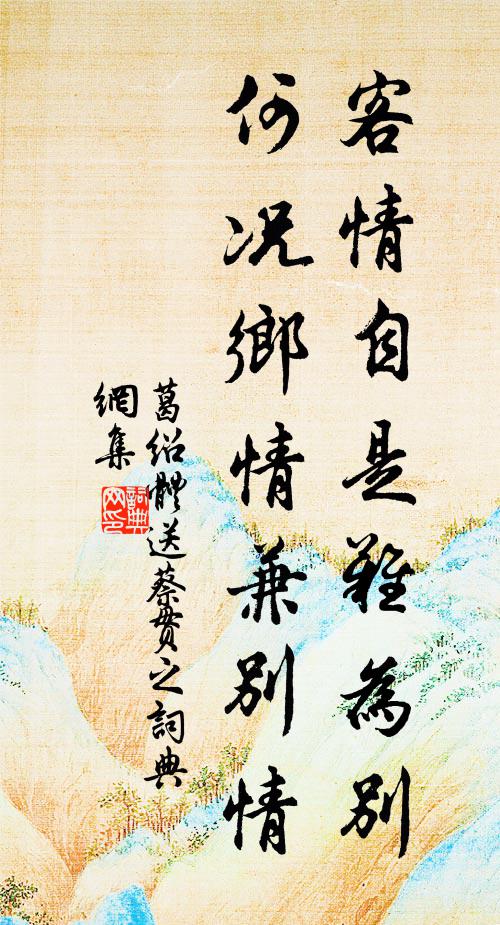 客情自是難為別
何况鄉情兼別情
葛紹體送蔡貫之詞典
網集
詞典
網印